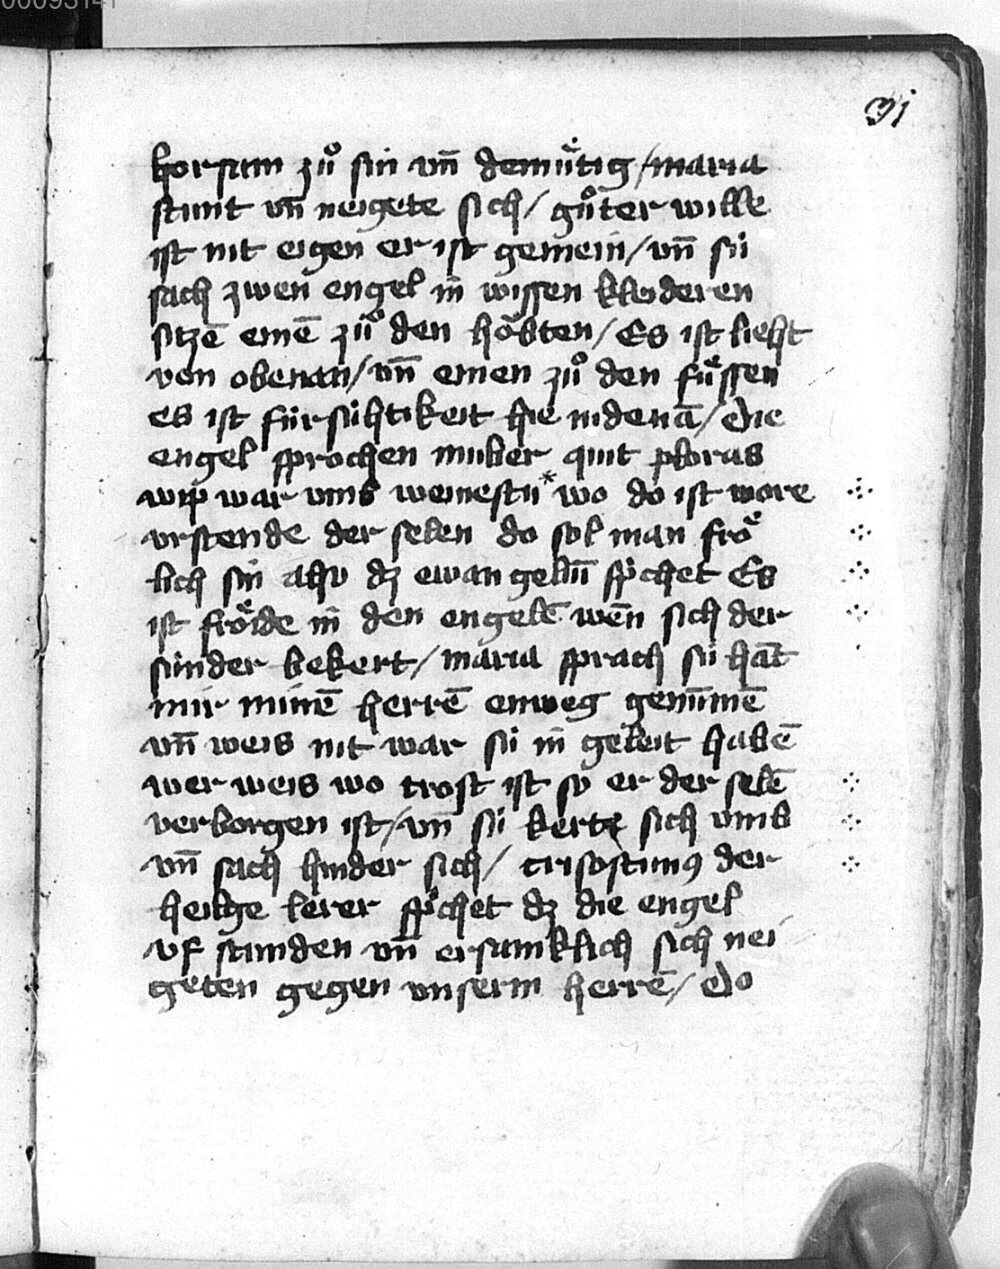 00093141
91
horsam zů sin vn̄ demu̇tig / maria
stunt vn̄ neigete sich / gůter wille
ist nit eigen er ist gemein / vn̄ sü
sach zwen engel in wissen kleideren
sitzē einē zů den höbten / Es ist lieht
von obenan / vn̄ einen zů den füssen
es ist fürsihtikeit hie nidenā / Die
engel sprochen mulier quit ploras
wip war vmb weinestu * wo do ist wore
vrstende der selen do sol man frö
lich sin also dz ewangeliū sp̄chet Es
ist fröide in den engelē wēn sich der
sünder bekert / maria sprach sü hāt
mir minē herrē enweg genūmē
vn̄ weis nit war sü in geleit habē
wer weis wo trost ist so er der selē
verborgen ist / vn̄ sü kerte sich vmb
vn̄ sach hinder sich / crisostimꝰ der
heilige lerer sp̄chet dz die engel
vf stunden vn̄ ersamklich sich nei
geten gegen vnserm herrē / Do